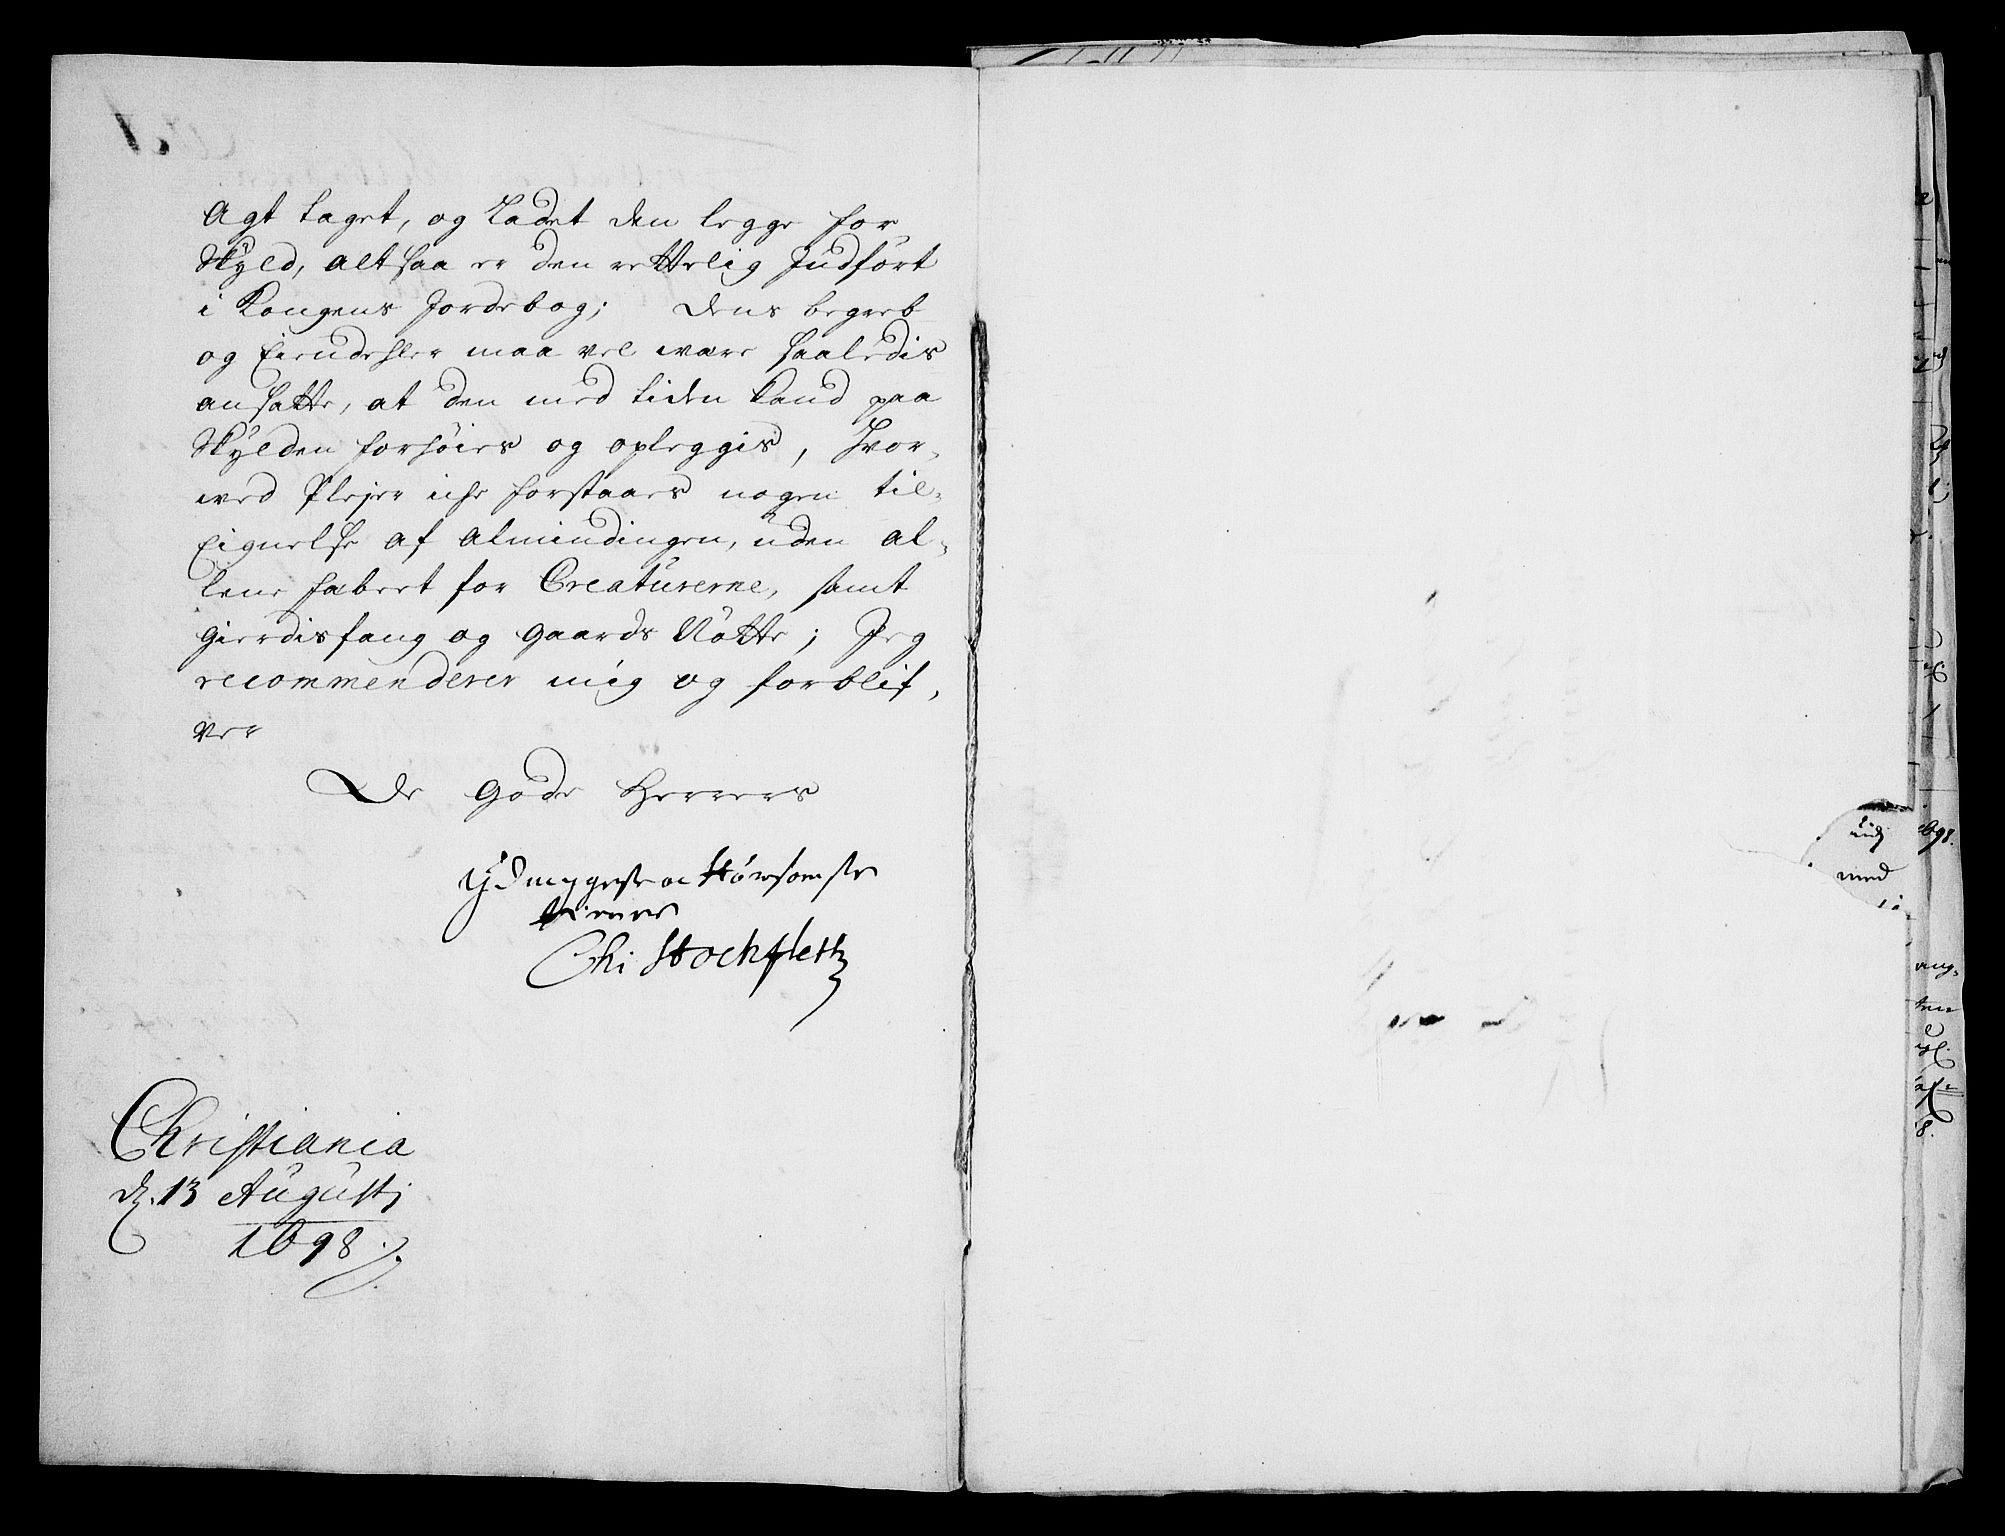 Agt taget, og Ladet den legge for
Skyld, alt saa er den rettelig Indfört
i Kongens Jordebog; Dens begreb
og Eiendehler maa vel være saaledis
ansatte, at den med tiden kand paa
Skylden forhöies og opleggis, Hvor-
ved Plejer iche forstaaes nogen til-
Eignelse af Almindingen, uden al-
lene habert for Creaturerne, samt
gierdisfang og gaards Nötte; Jeg
recommenderer mig og forblif-
ver
De gode Herrers
Ydmygeste oc
tienere
Chr Stockfleth
Christiania
d. 13 Augusti
1698
1698.
med